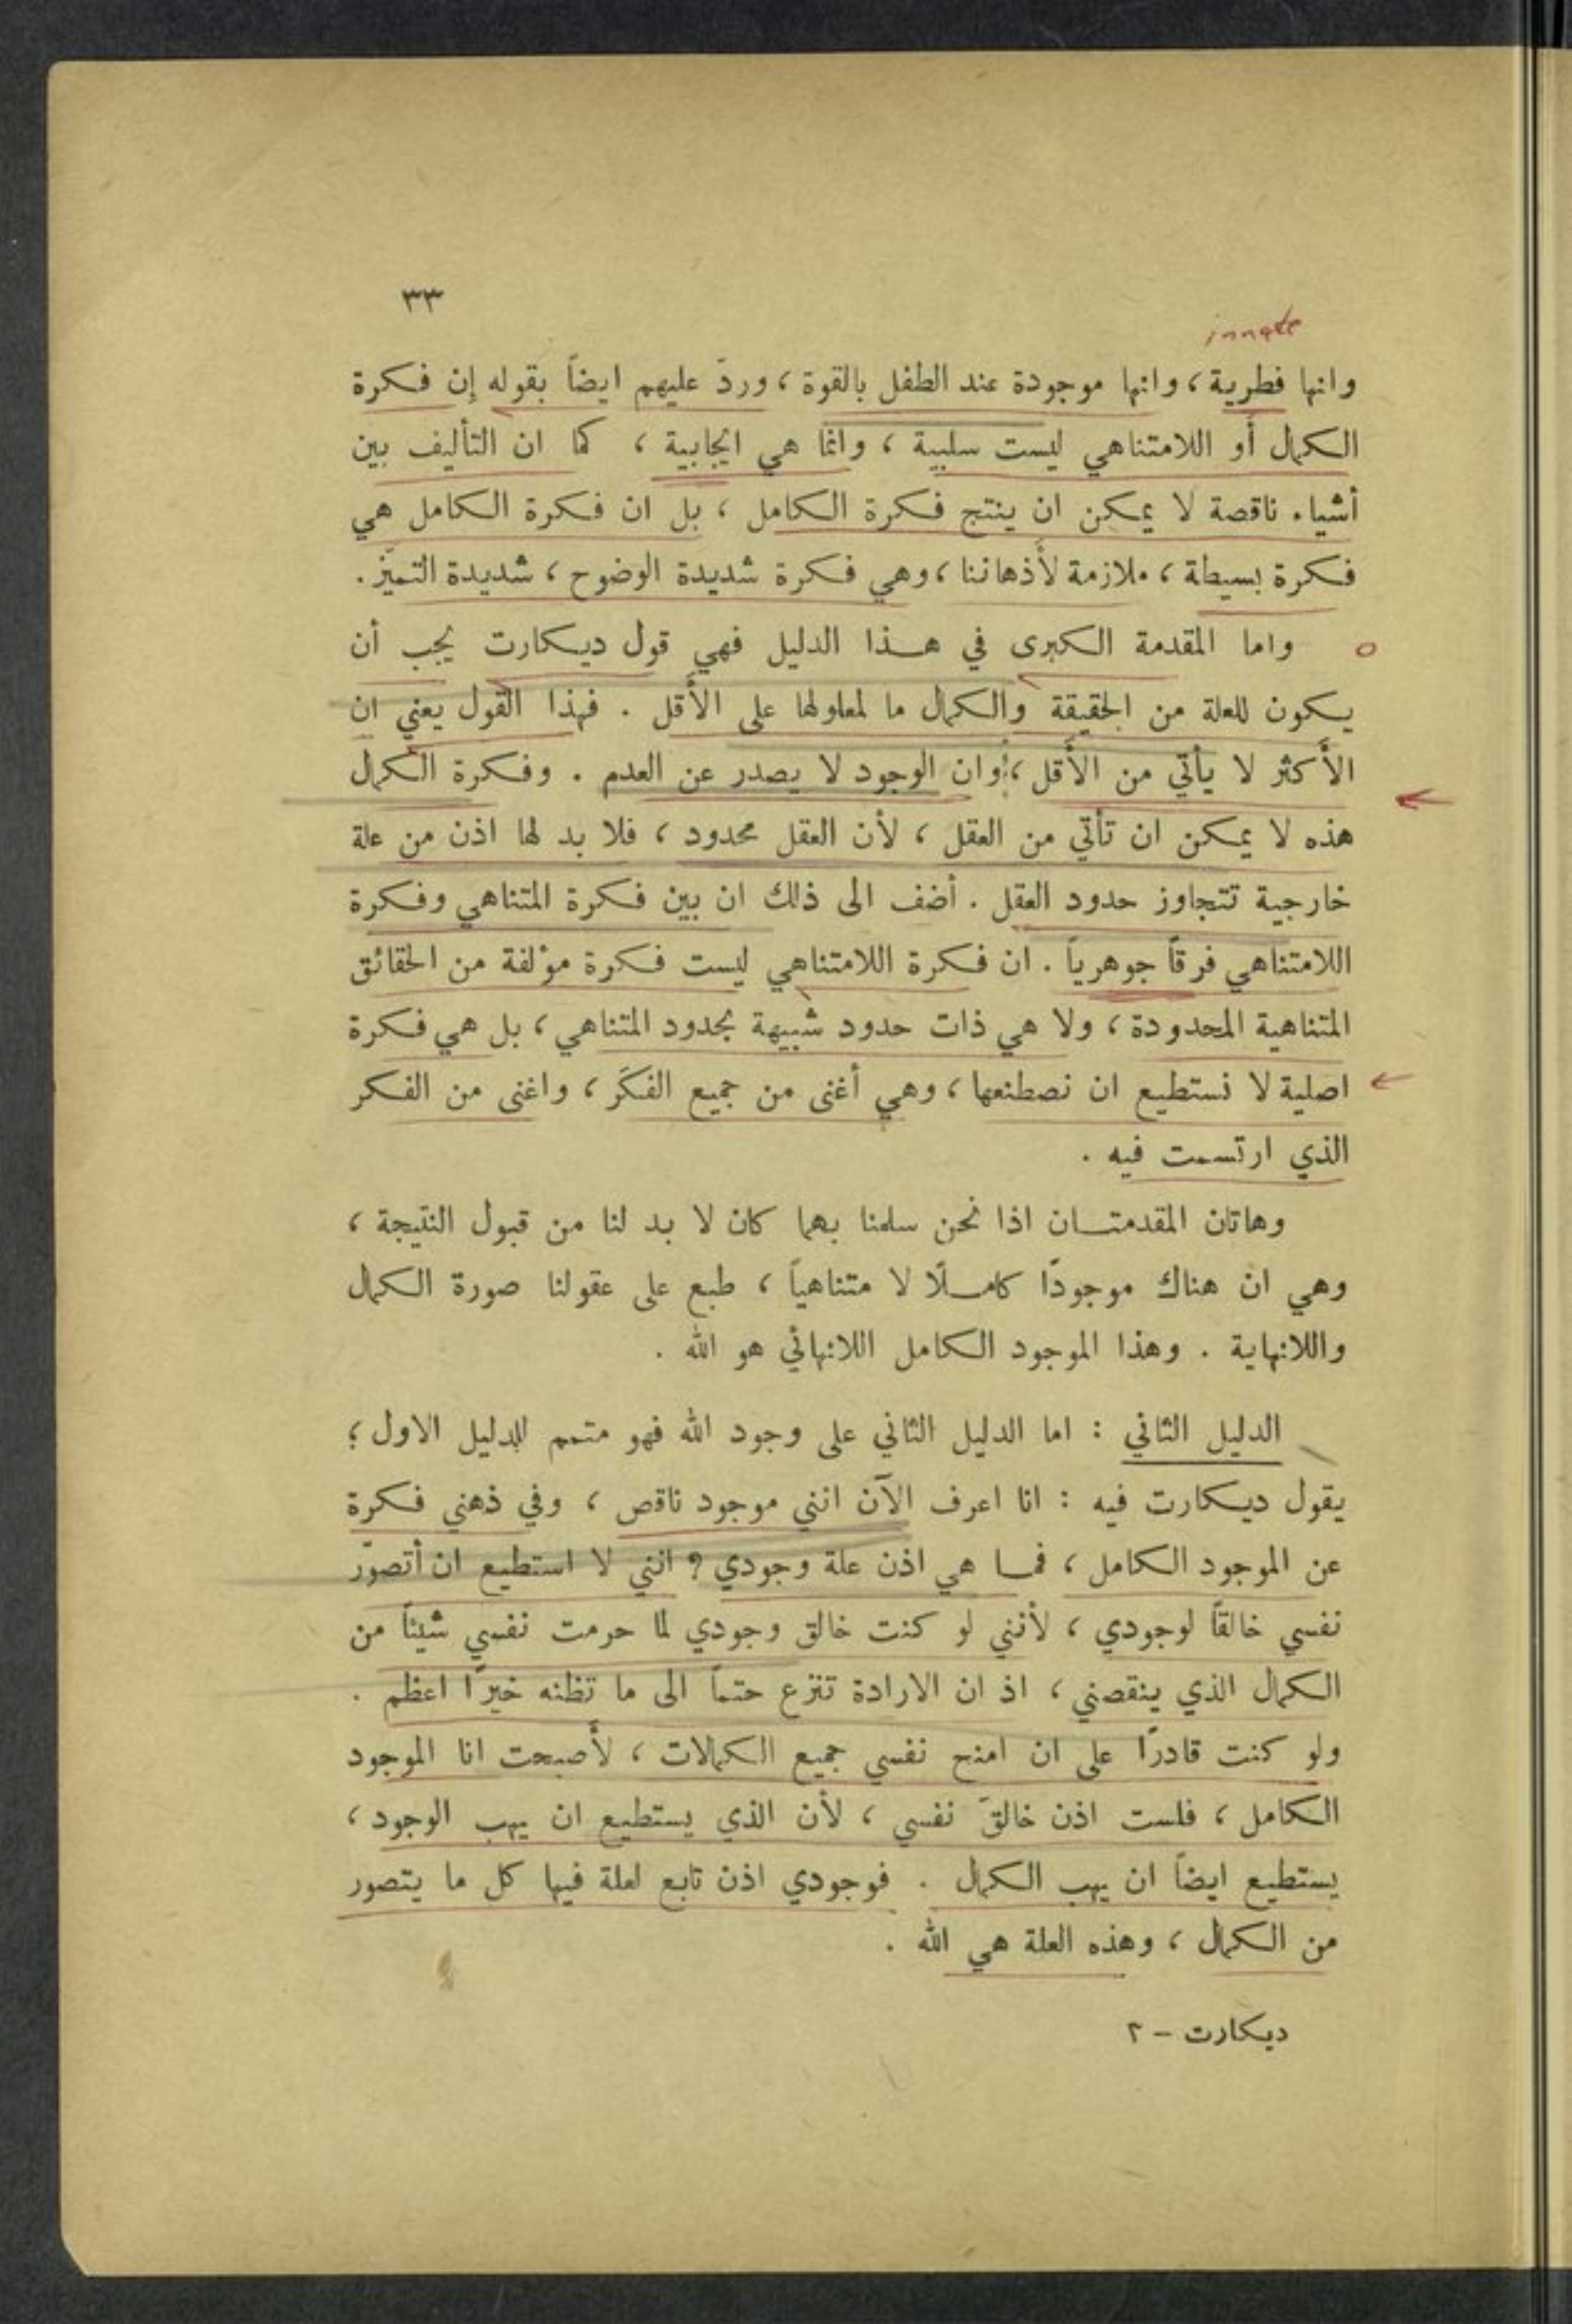 ٣٣
innate
وانها فطرية ، وانها موجودة عند الطفل بالقوة ، وردّ عليهم ايضاً بقوله إن فكرة
الكمال أو اللامتناهي ليست سلبية ، وانما هي ايجابية ، كما ان التأليف بين
أشياء ناقصة لا يمكن ان ينتج فكرة الكامل ، بل ان فكرة الكامل هي
فكرة بسيطة ، ملازمة لأذهاننا ، وهي فكرة شديدة الوضوح ، شديدة التميّز .
واما المقدمة الكبرى في هذا الدليل فهي قول ديكارت يجب أن
يكون للعلة من الحقيقة والكمال ما لمعلولها على الأقل . فهذا القول يعني ان
الأكثر لا يأتي من الأقل ، وان الوجود لا يصدر عن العدم . وفكرة الكمال
هذه لا يمكن ان تأتي من العقل ، لأن العقل محدود ، فلا بد لها اذن من علة
خارجية تتجاوز حدود العقل . أضف الى ذلك ان بين فكرة المتناهي وفكرة
اللامتناهي فرقاً جوهرياً . ان فكرة اللامتناهي ليست فكرة مؤلفة من الحقائق
المتناهية المحدودة ، ولا هي ذات حدود شبيهة بحدود المتناهي ، بل هي فكرة
اصلية لا نستطيع ان نصطنعها ، وهي أغنى من جميع الفكَر ، واغنى من الفكر
الذي ارتسمت فيه .
وهاتان المقدمتان اذا نحن سلمنا بهما كان لا بد لنا من قبول النتيجة ،
وهي ان هناك موجودًا كاملًا لا متناهياً ، طبع على عقولنا صورة الكمال
واللانهاية . وهذا الموجود الكامل اللانهائي هو الله .
الدليل الثاني : اما الدليل الثاني على وجود الله فهو متمم للدليل الاول ؛
يقول ديكارت فيه : انا اعرف الآن انني موجود ناقص ، وفي ذهني فكرة
عن الموجود الكامل ، فما هي اذن علة وجودي ؟ انني لا استطيع ان أتصوّر
نفسي خالقاً لوجودي ، لأنني لو كنت خالق وجودي لما حرمت نفسي شيئاً من
الكمال الذي ينقصني ، اذ ان الارادة تنزع حتماً الى ما تظنه خيرًا اعظم .
ولو كنت قادرًا على ان امنح نفسي جميع الكمالات ، لأصبحت انا الموجود
الكامل ، فلست اذن خالقَ نفسي ، لأن الذي يستطيع ان يهب الوجود ،
يستطيع ايضاً ان يهب الكمال . فوجودي اذن تابع لعلة فيها كل ما يتصور
من الكمال ، وهذه العلة هي الله .
ديكارت – ٢